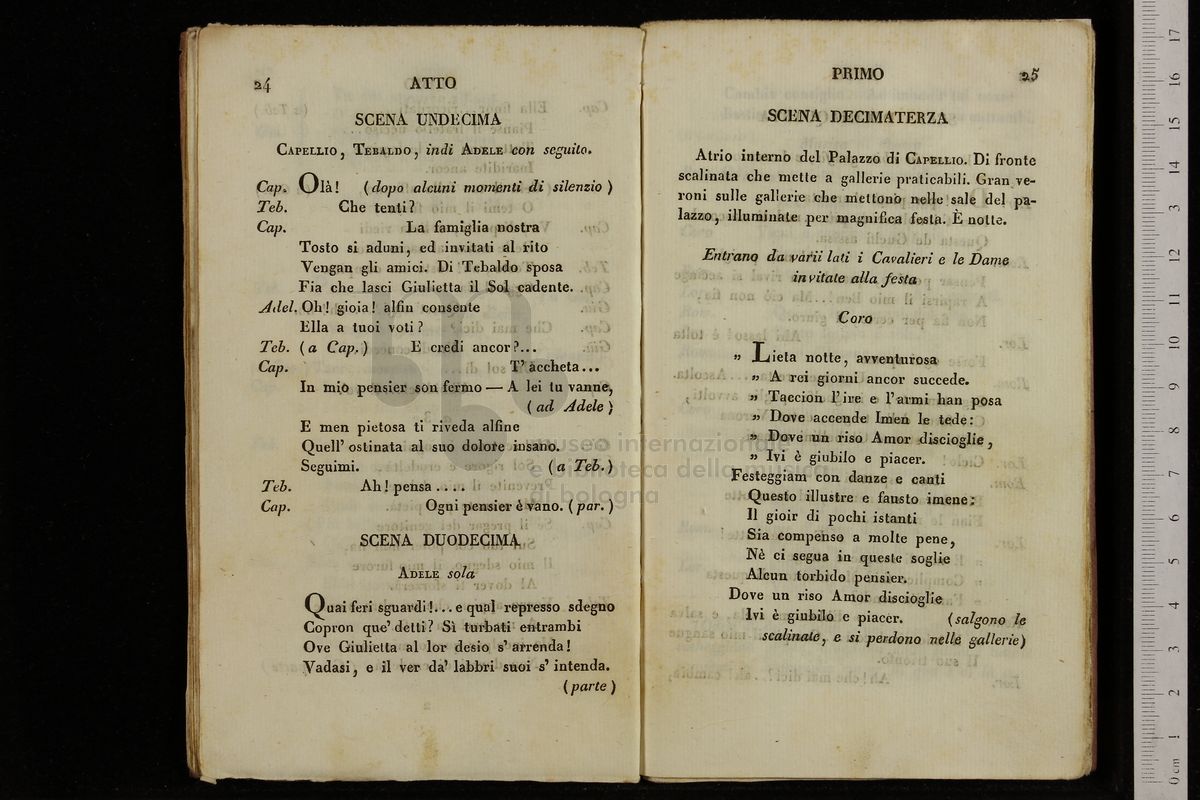 24 ATTO
SCENA UNDECIMA
CAPELLIO, TEBALDO, indi ADELE con seguito.
Cap. Olà! (dopo alcuni momenti di silenzio)
Teb. Che tenti?
Cap. La famiglia nostra
Tosto si aduni, ed invitati al rito
Vengan gli amici. Di Tebaldo sposa
Fia che lasci Giulietta il Sol cadente.
Adel. Oh! gioia! alfin consente
Ella a tuoi voti?
Teb. (a Cap.) E credi ancor?...
Cap. T' accheta...
In mio pensier son fermo — A lei tu vanne,
(ad Adele)
E men pietosa ti riveda alfine
Quell' ostinata al suo dolore insano.
Seguimi. (a Teb.)
Teb. Ah! pensa....
Cap. Ogni pensier è vano. (par.)
SCENA DUODECIMA
ADELE sola
Quai feri sguardi!... e qual represso sdegno
Copron que' detti? Sì turbati entrambi
Ove Giulietta al lor desio s' arrenda!
Vadasi, e il ver da' labbri suoi s' intenda.
(parte)
PRIMO 25
SCENA DECIMATERZA
Atrio interno del Palazzo di CAPELLIO. Di fronte
scalinata che mette a gallerie praticabili. Gran ve-
roni sulle gallerie che mettono nelle sale del pa-
lazzo, illuminate per magnifica festa. È notte.
Entrano da varii lati i Cavalieri e le Dame
invitate alla festa
Coro
» Lieta notte, avventurosa
» A rei giorni ancor succede.
» Taccion l'ire e l'armi han posa
» Dove accende Imen le tede:
» Dove un riso Amor discioglie,
» Ivi è giubilo e piacer.
Festeggiam con danze e canti
Questo illustre e fausto imene:
Il gioir di pochi istanti
Sia compenso a molte pene,
Nè ci segua in queste soglie
Alcun torbido pensier.
Dove un riso Amor discioglie
Ivi è giubilo e piacer. (salgono le
scalinate, e si perdono nelle gallerie)
museo internazionale
e biblioteca della musica
di bologna
0cm 1 2 3 4 5 6 7 8 9 10 11 12 13 14 15 16 17